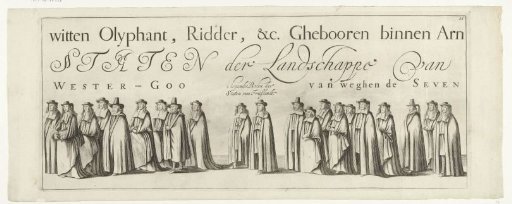 witten Olyphant, Ridder, &c. Ghebooren binnen Arn
STATEN der Landschappe van
WESTER-GOO van weghen de SEVEN